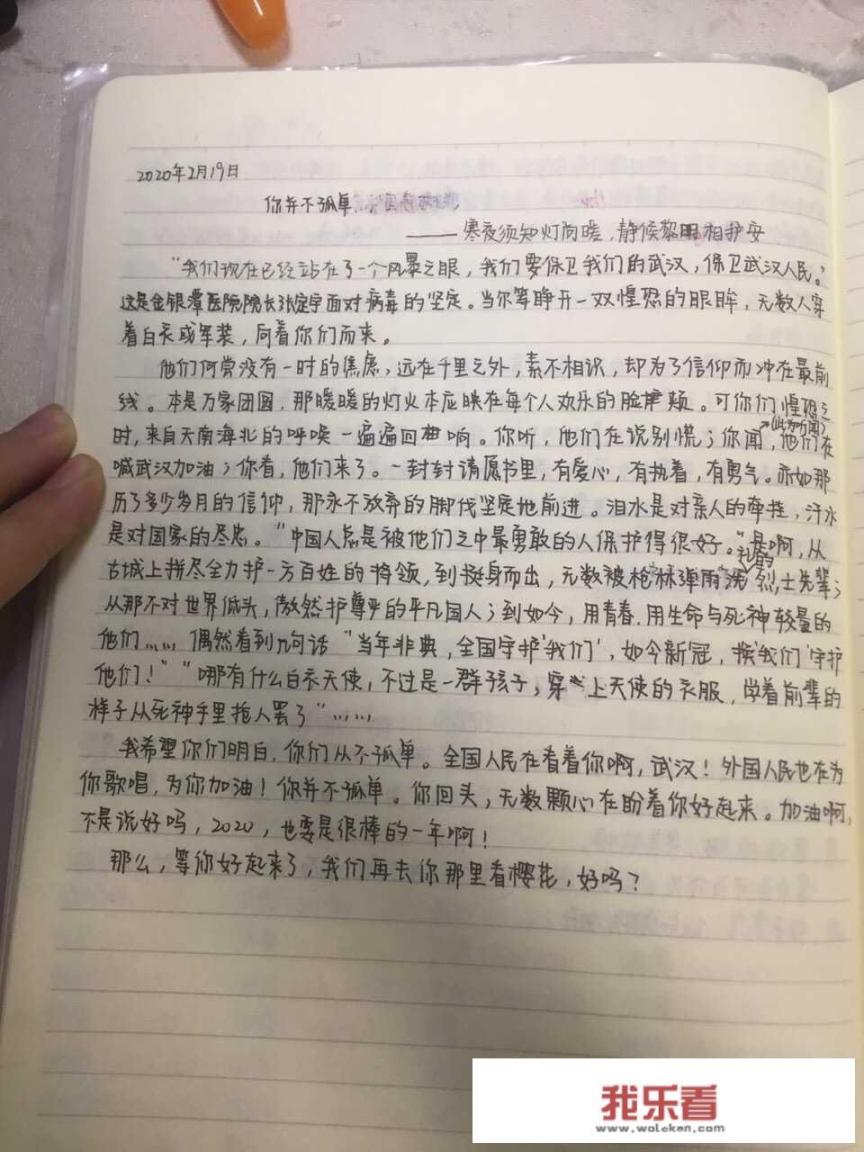 2020年2月19日
你并不孤单
——寒夜须知灯尚暖，静候黎明相护安
“我们现在已经站在了一个风暴之眼，我们要保卫我们的武汉，保卫武汉人民。”
这是金银潭医院院长张定宇面对病毒的坚定。当你等睁开一双惶恐的眼眸，无数人穿
着白衣或军装，向着你们而来。
他们何尝没有一时的焦虑，远在千里之外，素不相识，却为了信仰而冲在最前
线。本是万家团圆，那暖暖的灯火本应映在每个人欢乐的脸颊。可你们惶恐之
时，来自天南海北的呼唤一遍遍回响。你听，他们在说别慌；你闻，他们在
喊武汉加油；你看，他们来了。一封封请愿书里，有爱心，有执着，有勇气。亦如那
历了多少岁月的信仰，那永不放弃的脚伐坚定地前进。泪水是对亲人的牵挂，汗水
是对国家的尽忠。“中国人总是被他们之中最勇敢的人保护得很好。”是啊，从
古城上拼尽全力护一方百姓的将领，到挺身而出，无数被枪林弹雨洗礼的烈士先辈；
从那不对世界低头，傲然护尊严的平凡国人；到如今，用青春、用生命与死神较量的
他们…… 偶然看到几句话“当年非典，全国守护‘我们’，如今新冠，换‘我们’守护
他们！”“哪有什么白衣天使，不过是一群孩子，穿上天使的衣服，学着前辈的
样子从死神手里抢人罢了”……
我希望你们明白，你们从不孤单。全国人民在看着你啊，武汉！外国人民也在为
你歌唱，为你加油！你并不孤单。你回头，无数颗心在盼着你好起来。加油啊，
不是说好吗，2020，也要是很棒的一年啊！
那么，等你好起来了，我们再去你那里看樱花，好吗？
我乐看
www.woleken.com